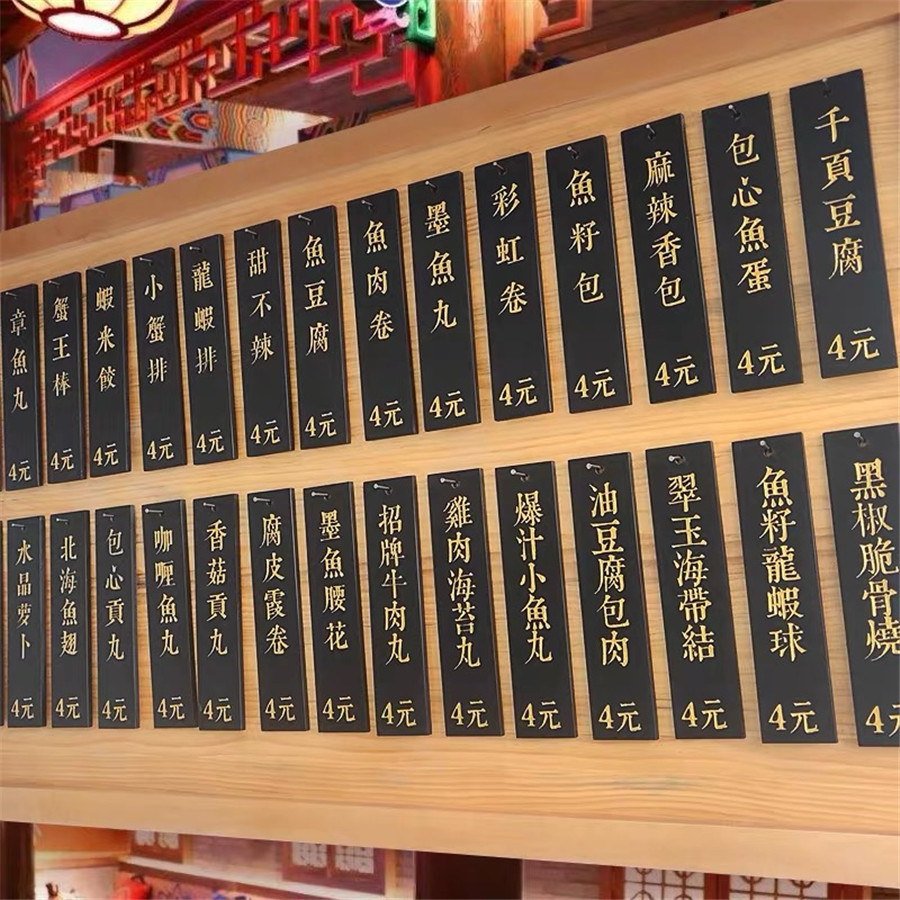 章魚丸 4元
蟹王棒 4元
蝦米餃 4元
小蟹排 4元
龍蝦排 4元
甜不辣 4元
魚豆腐 4元
魚肉卷 4元
墨魚丸 4元
彩虹卷 4元
魚籽包 4元
麻辣香包 4元
包心魚蛋 4元
千頁豆腐 4元
水晶萝卜 4元
北海魚翅 4元
包心貢丸 4元
咖喱魚丸 4元
香菇貢丸 4元
腐皮霞卷 4元
墨魚腰花 4元
招牌牛肉丸 4元
雞肉海苔丸 4元
爆汁小魚丸 4元
油豆腐包肉 4元
翠玉海帶結 4元
魚籽龍蝦球 4元
黑椒脆骨燒 4元